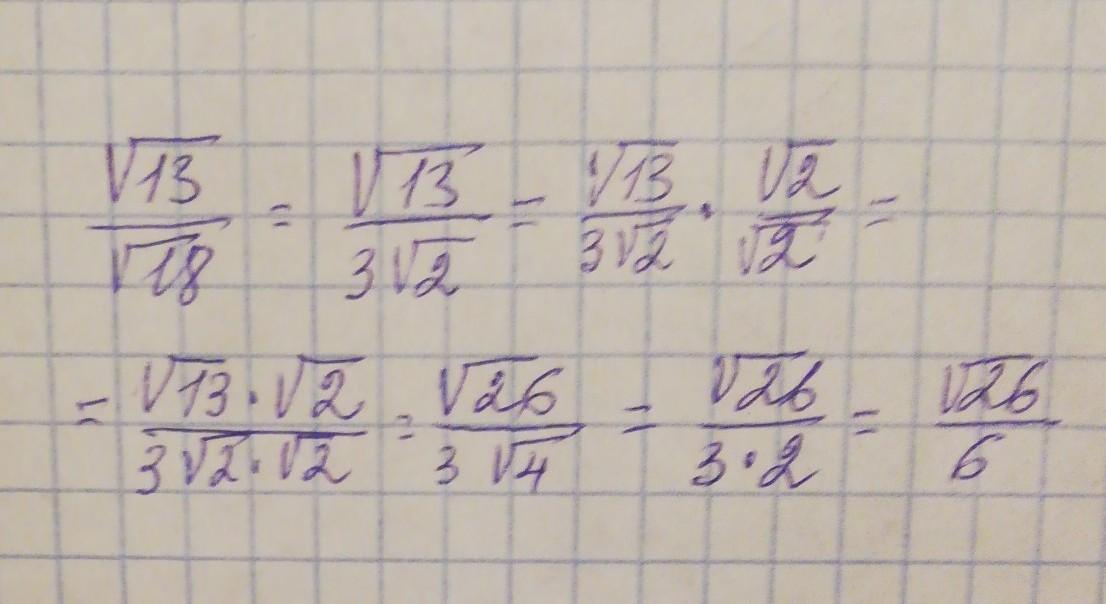 √13/√18 = √13/3√2 = √13/3√2 · √2/√2 =
= √13·√2/3√2·√2 = √26/3√4 = √26/3·2 = √26/6